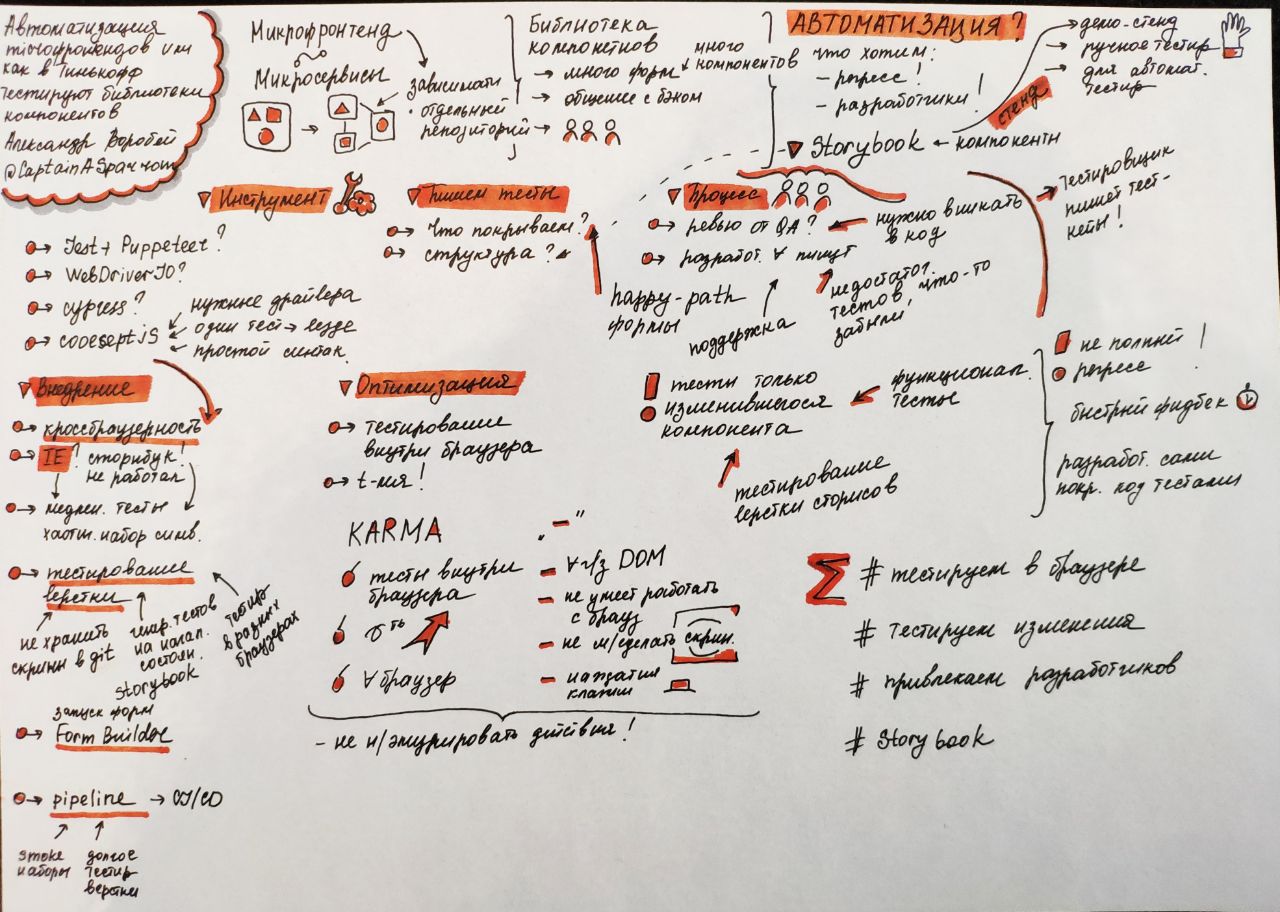 Автоматизация
microфронтендов или
как в Тинькофф
тестируют библиотеки
компонентов
Александр Воробей
@CaptainASparrow
Микрофронтенд
Микросервисы
зависимати
отдельный
репозиторий →
Библиотека
компонетнов
→ много форм
→ общение с бэком
много
компонентов
АВТОМАТИЗАЦИЯ?
что хотим:
- регресс!
- разработчики!
Storybook ← компоненты
стенд
→ демо-стенд
→ ручное тестир
→ для автомат.
тестир
Инструмент
→ Jest + Puppeteer?
→ WebDriverIO?
→ cypress?
→ codeceptJS
нужные драйвера
один тест → везде
простой синтак.
Пишем тесты
→ Что покрываем?
→ структура?
happy-path
формы
Процесс
→ ревью от QA?
→ разработ. ∀ пишут
нужно вникать
в код
поддержка
недостаточ.
тестов, что-то
забыли
→ Тестировщик
пишет тест-
кейы!
Внедрение
→ кроссбраузерность
→ IE? сторибук!
не работал
→ медлен. тесты
хаотич. набор симв.
→ тестирование
верстки
не хранить
скрины в git
тестов
на начал.
состоян.
Storybook
тестир
в разных
браузерах
запуск форм
→ Form Builder
→ pipeline → CI/CD
smoke
наборы
долгое
тестир
верстки
Оптимизация
→ тестирование
внутри браузера
→ t-ния!
KARMA
тесты внутри
браузера
σть
∀ браузер
- "
- ∀ ч/з DOM
- не умеет работать
с брауз
- не м/сделать скрин.
- нажатия
клавиш
- не м/эмулировать действия!
тесты только
изменившегося
компонента
функционал.
тесты
тестирование
верстки сторисов
не полный!
регресс
быстрый фидбек
разработ. сами
покр. код тестами
Σ # тестируем в браузере
# Тестируем изменения
# привлекаем разработчиков
# Storybook